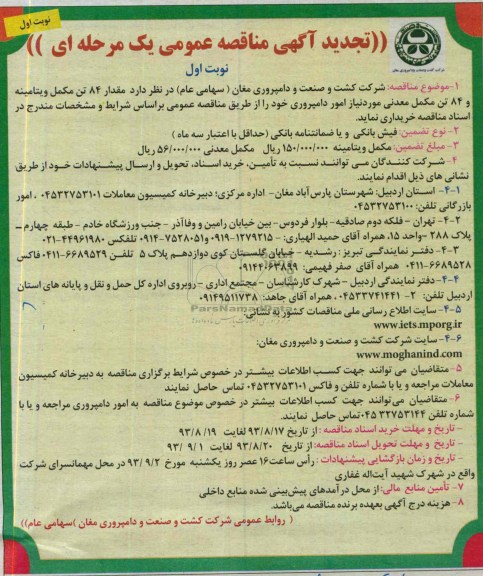 نوبت اول
شرکت کشت و صنعت و دامپروری مغان
((تجدید آگهی مناقصه عمومی یک مرحله ای ))
نوبت اول
۱-موضوع مناقصه: شرکت کشت و صنعت و دامپروری مغان ( سهامی عام) در نظر دارد مقدار ۸۴ تن مکمل ویتامینه
و ۸۴ تن مکمل معدنی موردنیاز امور دامپروری خود را از طریق مناقصه عمومی براساس شرایط و مشخصات مندرج در
اسناد مناقصه خریداری نماید.
۲- نوع تضمین: فیش بانکی و یا ضمانتنامه بانکی (حداقل با اعتبار سه ماه )
۳- مبلغ تضمین: مکمل ویتامینه ۱۵۰/۰۰۰/۰۰۰ ریال مکمل معدنی ۵۶/۰۰۰/۰۰۰ ریال
۴- شرکت کنندگان می توانند نسبت به تأمین، خرید اسناد، تحویل و ارسال پیشنهادات خود از طریق
نشانی های ذیل اقدام نمایند.
۴-۱- استان اردبیل: شهرستان پارس‌آباد مغان- اداره مرکزی؛ دبیرخانه کمیسیون معاملات ۰۴۵۳۲۷۵۳۱۰۱ ، امور
بازرگانی تلفن: ۰۴۵۳۲۷۵۳۱۰۰
۴-۲- تهران - فلکه دوم صادقیه- بلوار فردوس- بین خیابان رامین و وفاآذر - جنب ورزشگاه خادم - طبقه چهارم -
پلاک ۲۸۸ -واحد ۱۵، همراه آقای حمید الهیاری: ۱۲۷۹۲۱۵-۰۹۱۹ و۷۵۲۸۰۵۱-۰۹۱۴ تلفکس ۴۴۹۶۱۹۸۰-۰۲۱
۴-۳- دفتر نمایندگی تبریز : رشدیه - خیابان گلستان کوی دوازدهم پلاک ۵ تلفن ۶۶۸۹۵۲۹-۰۴۱۱ فاکس
۶۶۸۹۵۲۸-۰۴۱۱ همراه آقای صفر فهیمی: ۰۹۱۴۴۰۶۳۸۹۹
۴-۴- دفتر نمایندگی اردبیل - شهرک کارشناسان - مجتمع اداری - روبروی اداره کل حمل و نقل و پایانه های استان
اردبیل تلفن: ۲- ۰۴۵۳۳۷۴۱۴۴۱ ، همراه آقای جاهد: ۰۹۱۴۹۵۱۱۷۳۸
۴-۵- سایت اطلاع رسانی ملی مناقصات کشور به نشانی:
www.iets.mporg.ir
۴-۶- سایت شرکت کشت و صنعت و دامپروری مغان:
www.moghanind.com
۵- متقاضیان می توانند جهت کسب اطلاعات بیشتر در خصوص شرایط برگزاری مناقصه به دبیرخانه کمیسیون
معاملات مراجعه و یا با شماره تلفن و فاکس ۰۴۵۳۲۷۵۳۱۰۱ تماس حاصل نمایند
۶- متقاضیان می توانند جهت کسب اطلاعات بیشتر در خصوص موضوع مناقصه به امور دامپروری مراجعه و یا با
شماره تلفن ۳۲۷۵۳۱۴۴ ۰۴۵تماس حاصل نمایند.
- تاریخ و مهلت خرید اسناد مناقصه : از تاریخ ۹۳/۸/۱۷ لغایت ۹۳/۸/۱۹
- تاریخ و مهلت تحویل اسناد مناقصه:از تاریخ ۹۳/۸/۲۰ لغایت ۹۳/۹/۱
- تاریخ و زمان بازگشایی پیشنهادات : رأس ساعت۱۶ عصر روز یکشنبه مورخ ۹۳/۹/۲ در محل مهمانسرای شرکت
واقع در شهرک شهید آیت‌اله غفاری
۷- تأمین منابع مالی: از محل درآمدهای پیش‌بینی شده منابع داخلی
۸- هزینه درج آگهی بعهده برنده مناقصه می‌باشد.
( روابط عمومی شرکت کشت و صنعت و دامپروری مغان )سهامی عام))